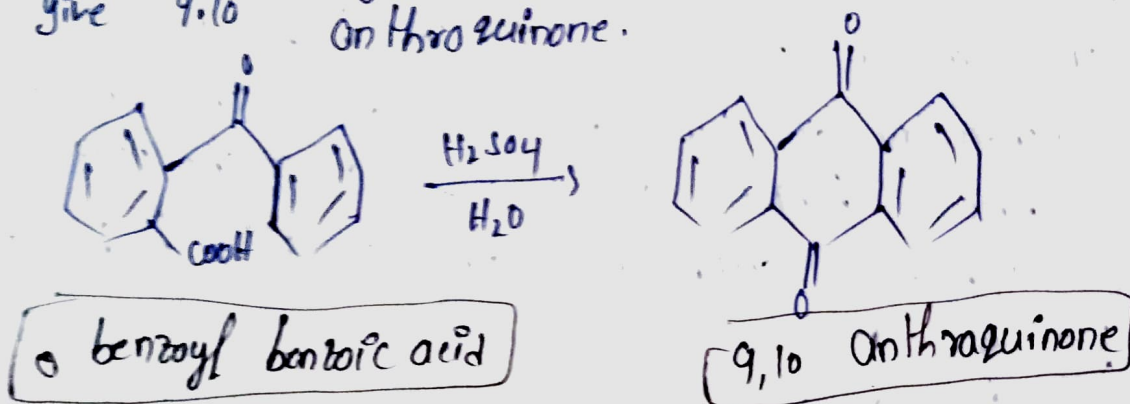 give 9.10 anthroquinone.
O
O
H2SO4
H2O
COOH
O
o benzoyl benzoic acid
9,10 anthraquinone